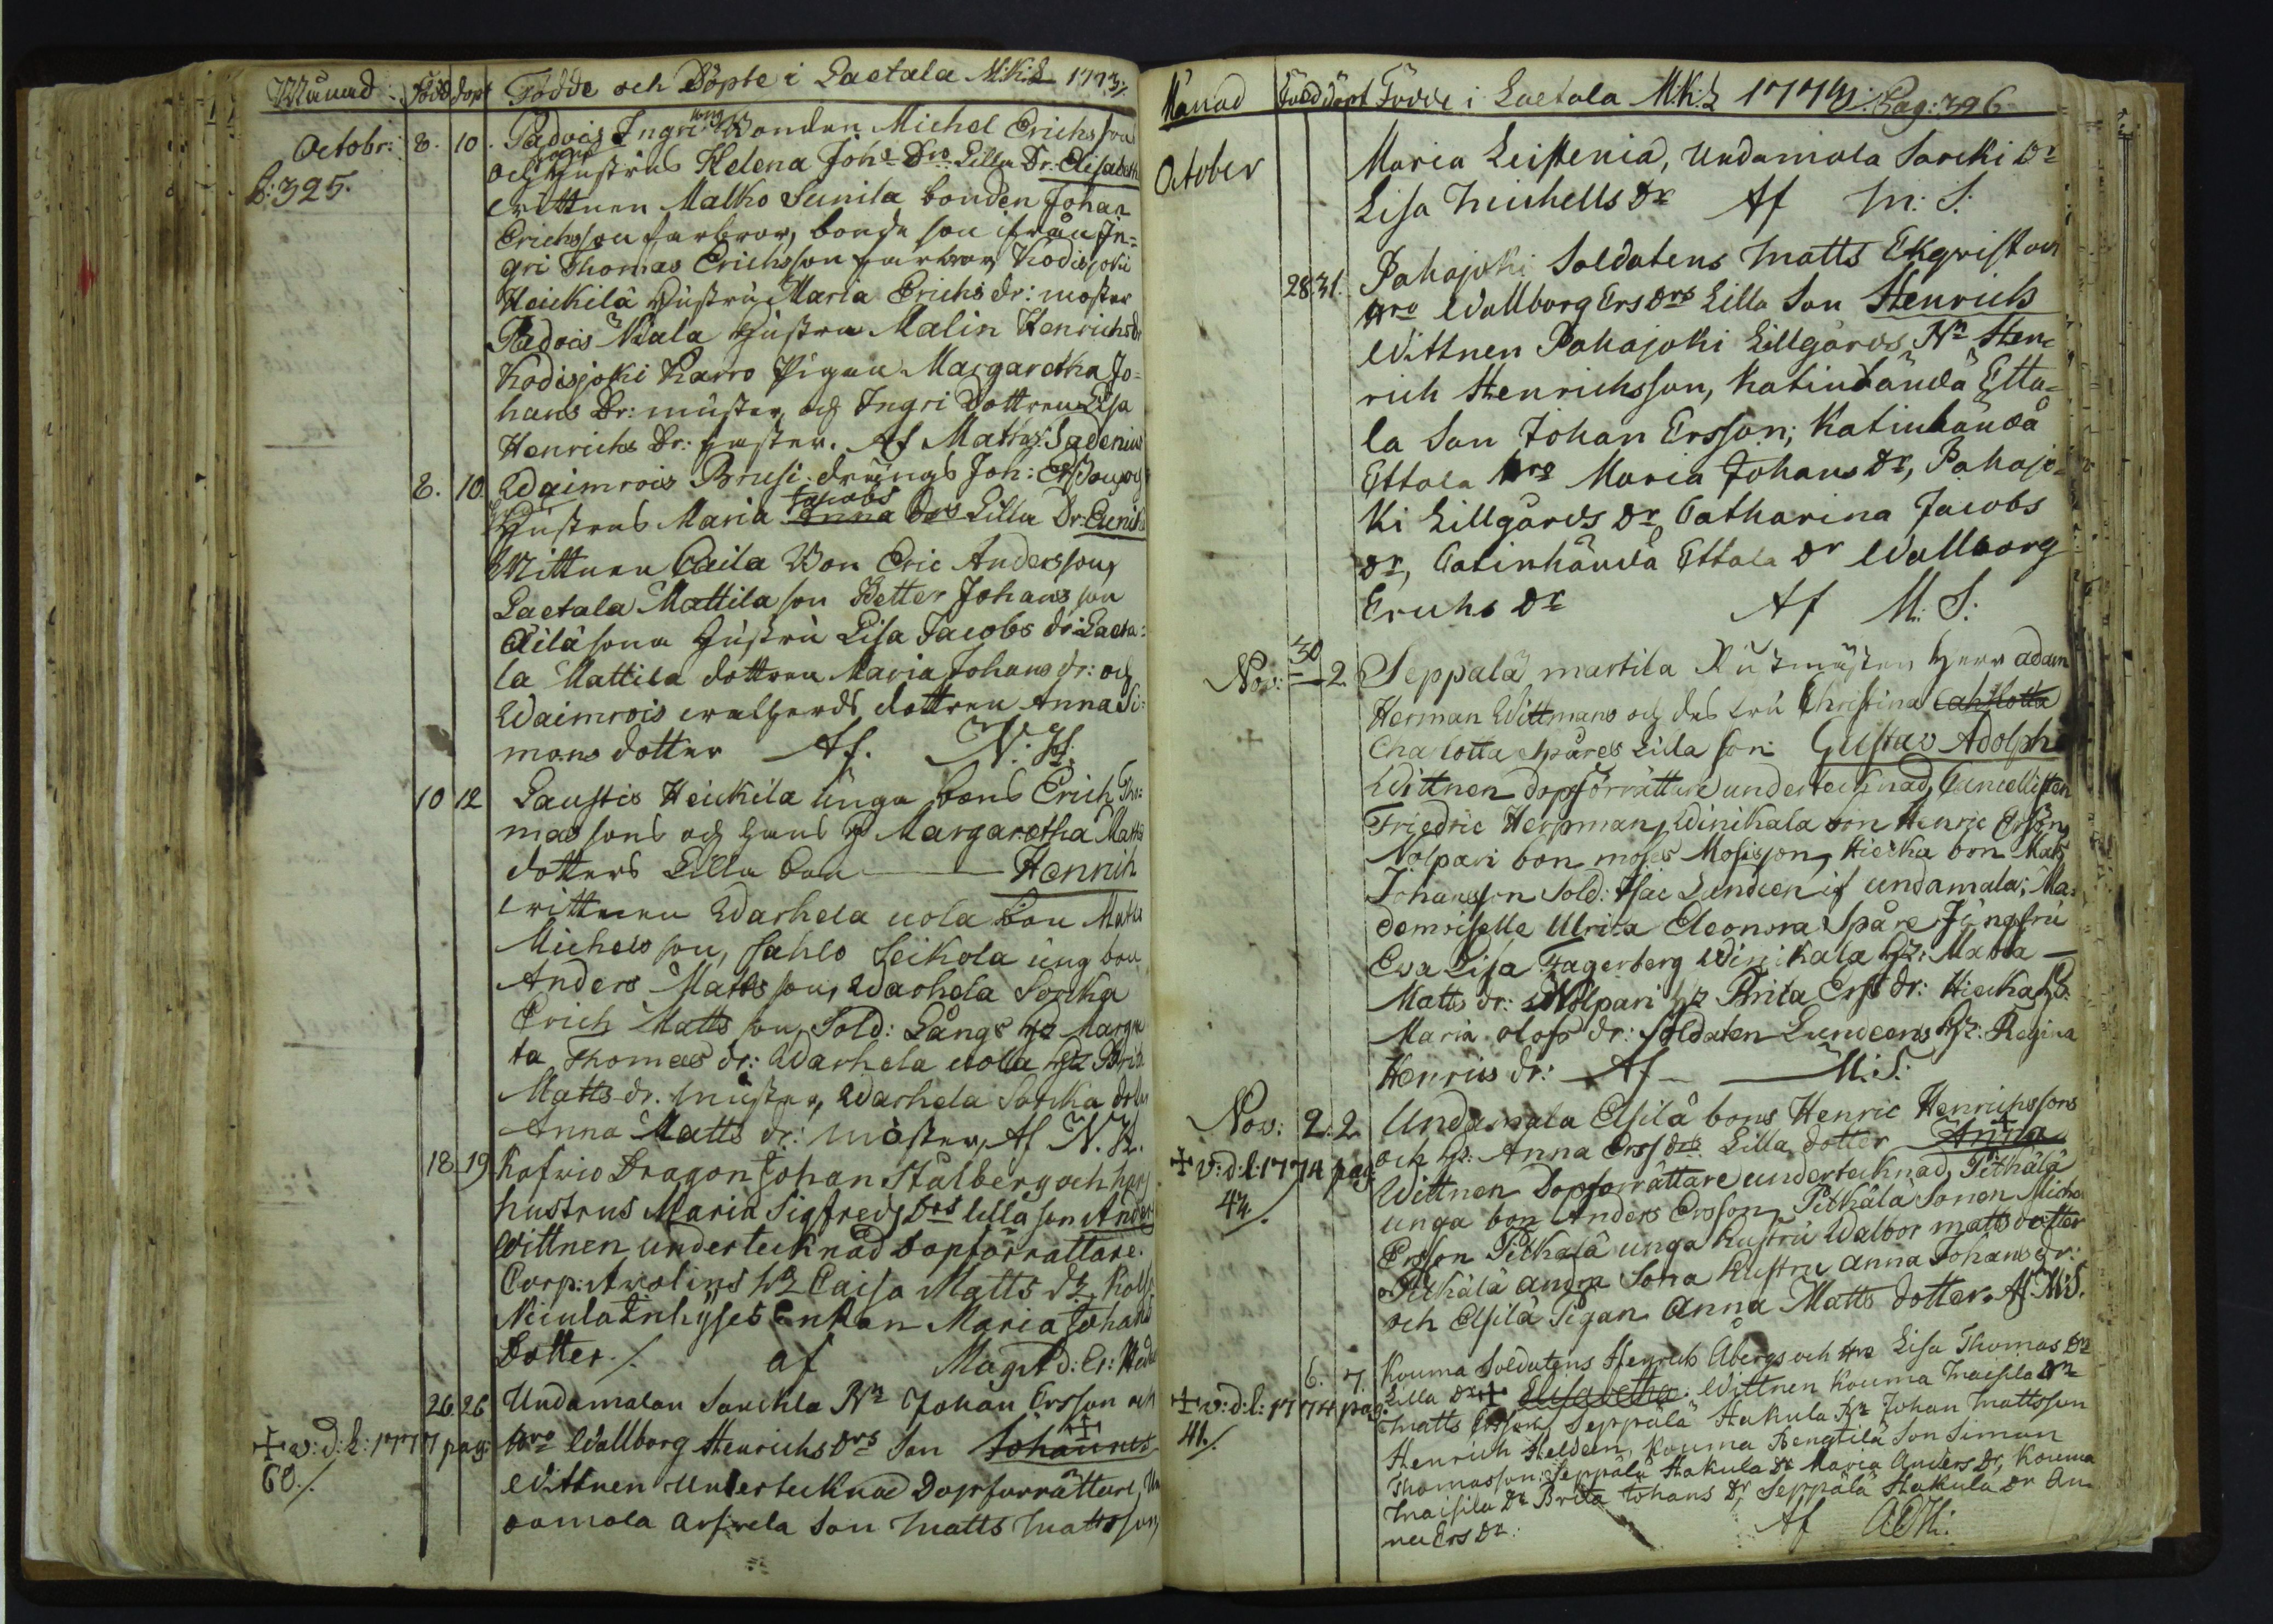 Månad Född döpt Födde och Döpte i Laetala M:K:L 1773/.
Octobr: 8. 10. Padois Ingri ung Bonden Michel Erichsson
p:325. och hustrus Helena Johs Drs Lilla Dr. Elisabeth
wittnen Malko Sunila bonden Johan
Erichsson farbror, bonde son ifrån In-
gri Thomas Erichsson farbror Kodisjoki
Heickilä hustru Maria Erichs dr: moster
Padois Niala hustru Malin Henrichsdr
Kodisjoki Karro Pigan Margaretha Jo-
hans Dr: muster och Ingri Dottren Lisa
Henrichs Dr: faster. Af Matths: Sadenius
8. 10 Waimrois Brusi drängs Joh: Ersson och
Hustrus Maria Jacobs Anna Drs Lilla Dr: Eunika
Wittnen Cäila Bon Eric Andersson
Laetala Mattila son Petter Johansson
Cäilä sona hustru Lisa Jacobs dr: Laeta-
la Mattila dottren Maria Johans dr: och
Waimrois dottren Anna Si-
mons dotter Af. N: H:
10 12 Laustis Heickilä unga bons Erich Tho-
massons och hans h Margaretha Matts
dotters Lilla Son Henrich
wittnen Warhela uola Bon Matts
Michelsson, sahlo Seikola ung bon
Anders Mattsson, Warhela Sorcka
Erich Mattsson, Sold: Långs H: Margre
ta Thomas dr: Warhela uola H: Brita
Matts dr. muster, Warhela Sorcka dotter
Anna Matts dr: moster, Af N. H.
18 19 Kafwio Dragon Johan Stålberg och hans
hustrus Maria Sigfreds Drs lilla son Anders
Wittnen undertecknad Dopförrättare.
Corp: Axolins H: Caisa Matts Dr, Koll
Neiula Inhyses Enkan Maria Johans
Dotter./. af Mag: A: d: Er: Hed
26 26 Undamalan Sarckila Bn Johan Ersson och
+ v: d: L: 1777 pag: Hro Wallborg Henrichs Drs Son Johannes
60./. Wittnen Undertecknad Dopförrättare, Un
damala Arfwela Son Matts Mattsson
Månad Född döpt Födde i Laetala M:K:L 1773/. Pag: 326
October Maria Leistenia, Undamala Sarcki Dr
Lisa Michells Dr Af M: S:
28. 31. Pahajoki Soldatens Matts Ekqvist och
Hro Wallborg Ers Drs Lilla Son Henrich
Wittnen Pahajoki Lillgårds Bn Hen-
rich Henrichsson, Katinhändä Etta-
la Son Johan Ersson; Katinhändä
Ettala Hro Maria Johans Dr, Pahajo-
ki Lillgårds Dr Catharina Jacobs
Dr, Catinhändä Ettala Dr Wallborg
Erichs Dr Af M: S:
Nov: 30 2. Seppälä martila Rustmästen Herr Adam
Herman Wittmans och des fru Christina Cahrlotta
Chalotta Spåres Lilla son Gustav Adolph
Wittnen dopförrättare undertecknad, Cancellisten
Friedric Herpman, Winikala bon Henric Ersson,
Nolpari bon moses Mosisson, Hiecka bon Mats
Johansson Sold: Isac Lundeen if undamala; Ma-
demoiselle Ulrica Eleonora Spåre Jungfru
Eva Lisa Fagerberg Winikala H: Maria
Matts dr: Nolpari H: Brita Ers dr: Hiecka H:
Maria olofs dr: Soldaten Lundeens H: Regina
Henrics dr: Af M: S:
Nov: 2. 2. Undamala Elsilä bons Henric Henrichssons
+ v: d: l: 1774 pag: och H: Anna Ers drs. Lilla dotter Anna
42./. Wittnen Dopförrättare undertecknad, Pitkälä
unga bon Anders Ersson, Pitkälä Sonen Michel
Ersson Pitkälä unga Hustru Walbor matts dotter
Pitkälä andra Sona Hustru Anna Johans dr:
och Elsilä Pigan Anna Matts dotter. Af M: S.
6. 7. Kouma Soldatens Henrich Åbergs och Hro Lisa Thomas Drs
+ v: d: l: 1774 pag: Lilla Dr + Elisabetha. Wittnen Kouma Maisila Bn
41./. Matts Ersson, Seppälä Hakula Bn Johan Mattsson
Henrich Heldeen, Kouma Bengtilä Son Simon
Thomasson; Seppälä Hakula Dr Maria Anders Dr, Kouma
Maisila Dr Brita Johans Dr, Seppälä Hakula Dr An-
na Ers Dr: Af ADH: